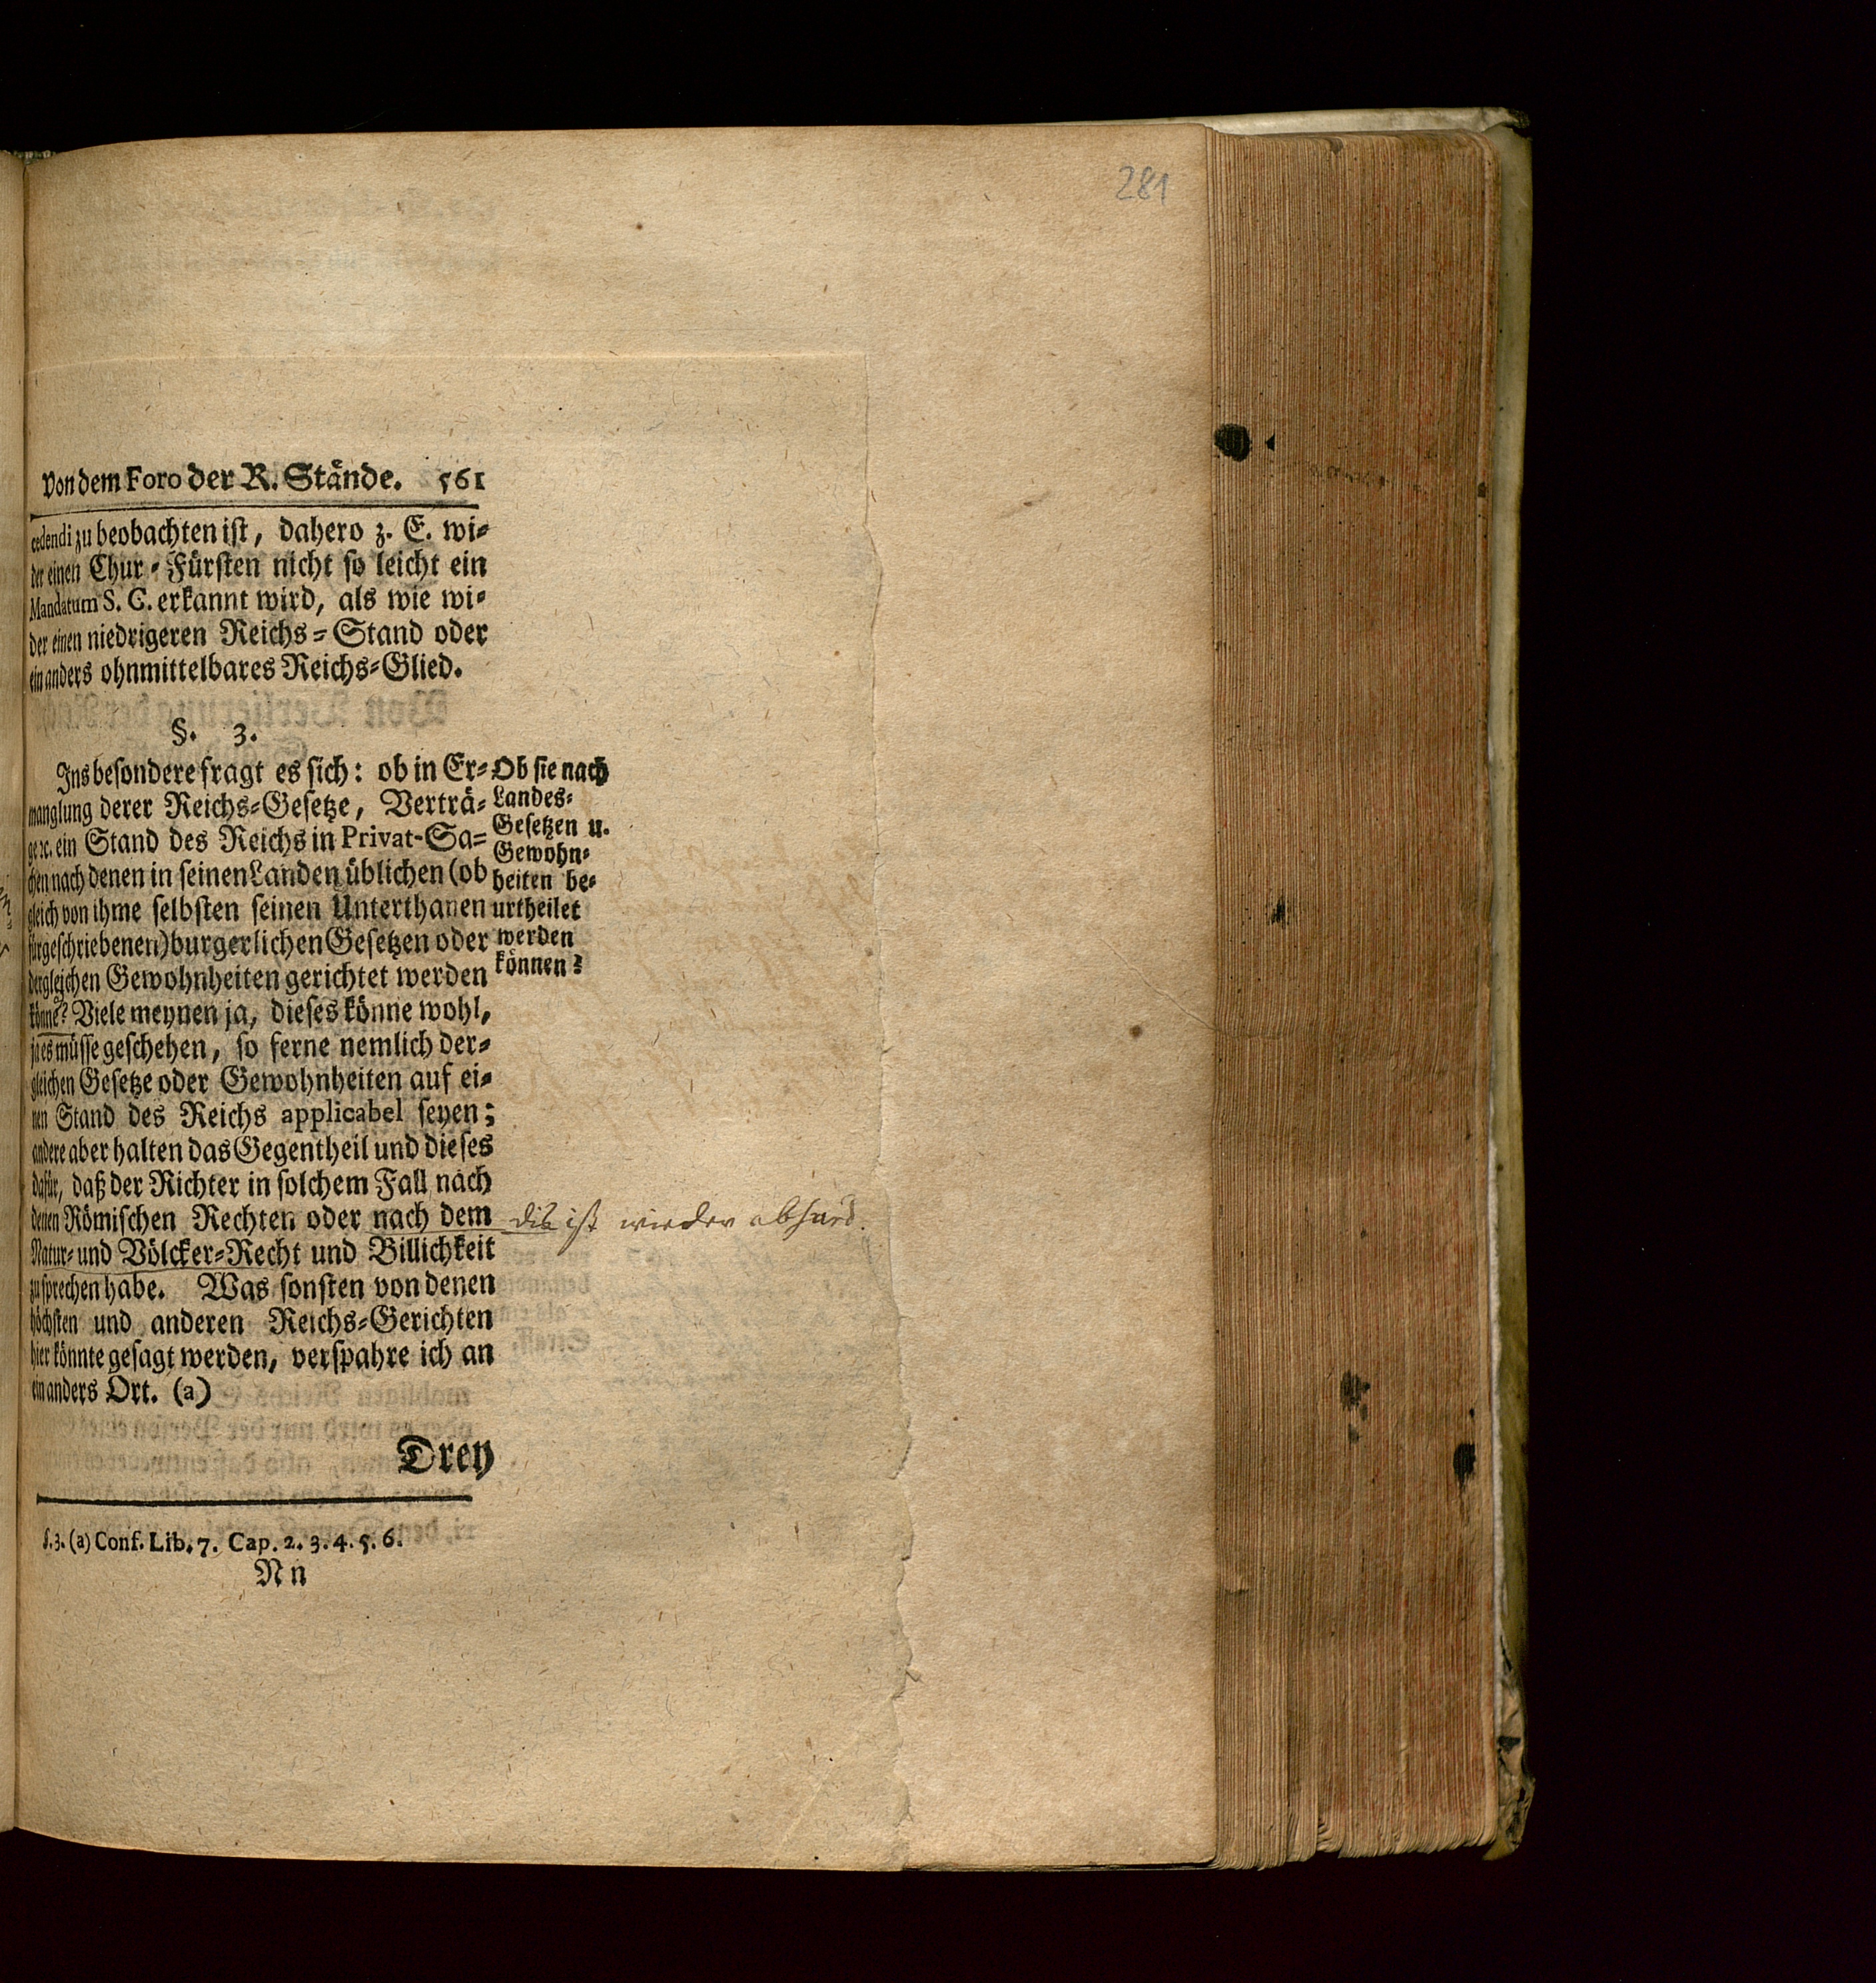 281
Von dem Foro der R. Stände. 561
cedendi zu beobachten ist, dahero z. E. wi-
der einen Chur-Fürsten nicht so leicht ein
Mandatum S. C. erkannt wird, als wie wi-
der einen niedrigeren Reichs-Stand oder
ein anders ohnmittelbares Reichs-Glied.
§. 3.
Ins besondere fragt es sich: ob in Er-
manglung derer Reichs-Gesetze, Verträ-
ge ꝛc. ein Stand des Reichs in Privat-Sa-
chen nach denen in seinen Landen üblichen (ob
gleich von ihme selbsten seinen Unterthanen
fürgeschriebenen) burgerlichen Gesetzen oder
dergleichen Gewohnheiten gerichtet werden
könne? Viele meynen ja, dieses könne wohl,
ja es müsse geschehen, so ferne nemlich der-
gleichen Gesetze oder Gewohnheiten auf ei-
nen Stand des Reichs applicabel seyen;
andere aber halten das Gegentheil und dieses
dafür, daß der Richter in solchem Fall nach
denen Römischen Rechten oder nach dem
Natur- und Völcker-Recht und Billichkeit
zu sprechen habe. Was sonsten von denen
höchsten und anderen Reichs-Gerichten
hier könnte gesagt werden, verspahre ich an
ein anders Ort. (a)
Ob sie nach
Landes-
Gesetzen u.
Gewohn-
heiten be-
urtheilet
werden
können?
diß ist wieder absurd.
Drey
§. 3. (a) Conf. Lib. 7. Cap. 2. 3. 4. 5. 6.
N n